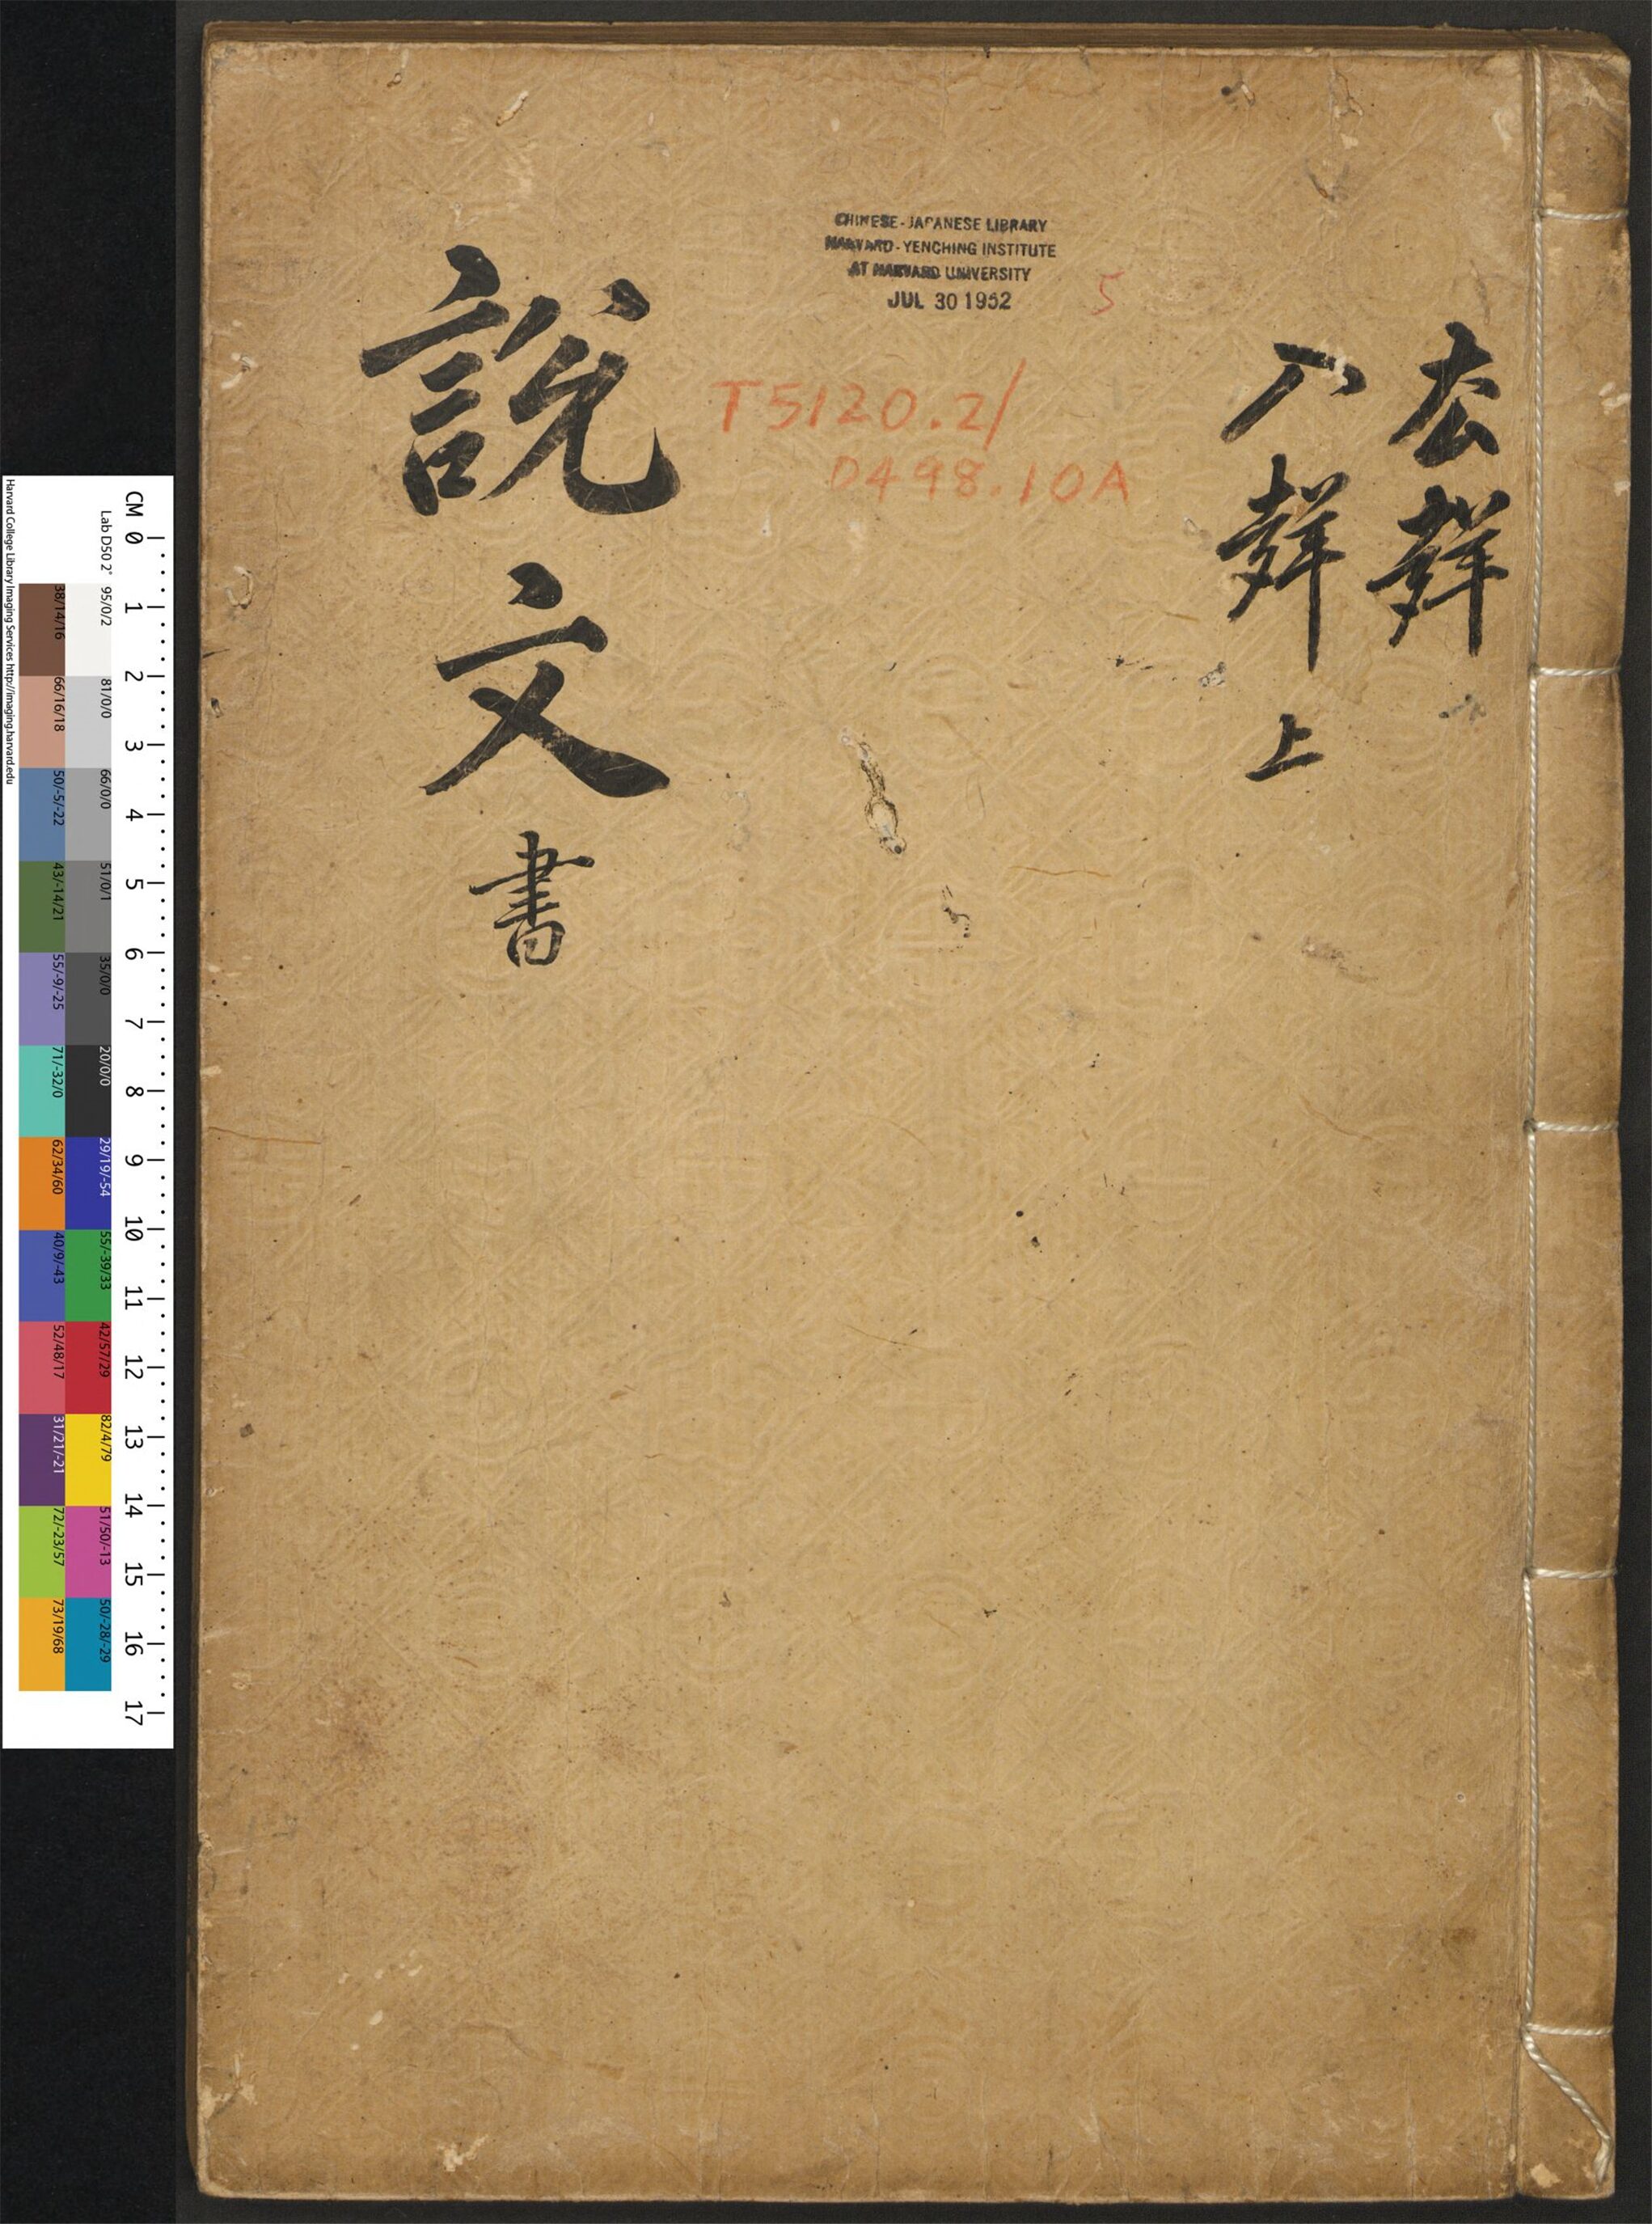 去聲
入聲 上
CHINESE-JAPANESE LIBRARY
HARVARD-YENCHING INSTITUTE
AT HARVARD UNIVERSITY
JUL 30 1952
5
T5120.2/
0498.10A
說文
書
CM 0 1 2 3 4 5 6 7 8 9 10 11 12 13 14 15 16 17
Lab D50 2° 95/0/2 81/0/0 66/0/0 51/0/1 35/0/0 20/0/0 29/19/-54 55/-39/33 42/57/29 82/4/79 51/50/-13 50/-28/-29
38/14/16 66/16/18 50/-5/-22 43/-14/21 55/-9/-25 71/-32/0 62/34/60 40/9/-43 52/48/17 31/21/-21 72/-23/57 73/19/68
Harvard College Library Imaging Services http://imaging.harvard.edu